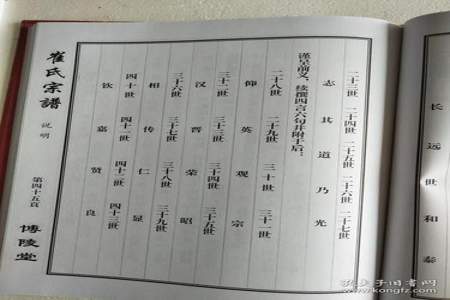 长 远 世 和 泰
二十三世 二十四世 二十五世 二十六世 二十七世
志 其 道 乃 光
谨呈前文，续撰四言六句并附于后：
二十八世 二十九世 三十世 三十一世
仰 英 观 宗
三十二世 三十三世 三十四世 三十五世
汉 晋 荣 昭
三十六世 三十七世 三十八世 三十九世
相 传 仁 显
四十世 四十一世 四十二世 四十三世
钦 嘉 贤 良
崔氏宗谱 说明 第四十五页 博陵堂
孔夫子旧书网
www.kongfz.com